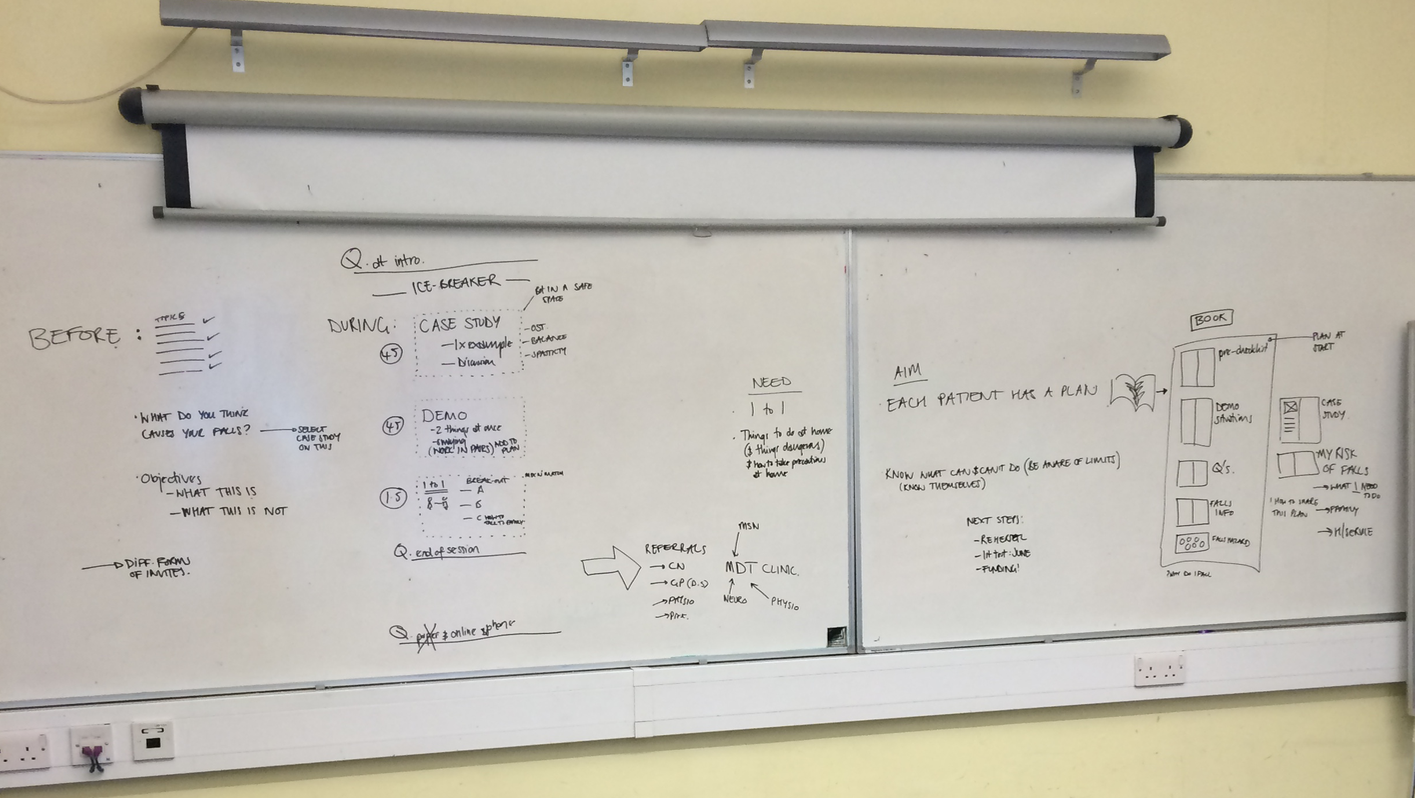 BEFORE :
TOPICS
• WHAT DO YOU THINK
CAUSES YOUR FALLS?
SELECT
CASE STUDY
ON THIS
• Objectives
– WHAT THIS IS
– WHAT THIS IS NOT
DIFF. FORMS
OF INVITES.
Q. at intro.
ICE-BREAKER
IN A SAFE
SPACE
DURING:
45
CASE STUDY
– 1x example
– Discussion
– OST.
– BALANCE
– SPASTICITY
45
DEMO
– 2 things at once
(WORK IN PAIRS) ADD TO
PLAN
1.5
1 to 1
BREAK-OUT
MIX N MATCH
– A
– B
– C HOW TO
TALK TO FAMILY
Q. end of session
Q. paper & online & phone
REFERRALS
→ CN
→ GP (D.S)
→ PHYSIO
MSN
MDT CLINIC.
NEURO
PHYSIO
NEED
• 1 to 1
• Things to do at home
(& things dangerous)
& how to take precautions
at home
AIM
EACH PATIENT HAS A PLAN
KNOW WHAT CAN & CAN'T DO (BE AWARE OF LIMITS)
(KNOW THEMSELVES)
NEXT STEPS:
– REHEARSAL
– FUNDING!
BOOK
pre-checklist
PLAN AT
START
DEMO
SITUATIONS
Q's.
FALLS
INFO
FALLS HAZARD
HOW DO I FALL
CASE
STUDY.
MY RISK
OF FALLS
→ WHAT I NEED
TO DO
HOW TO SHARE
THIS PLAN
→ FAMILY
→ H/SERVICE